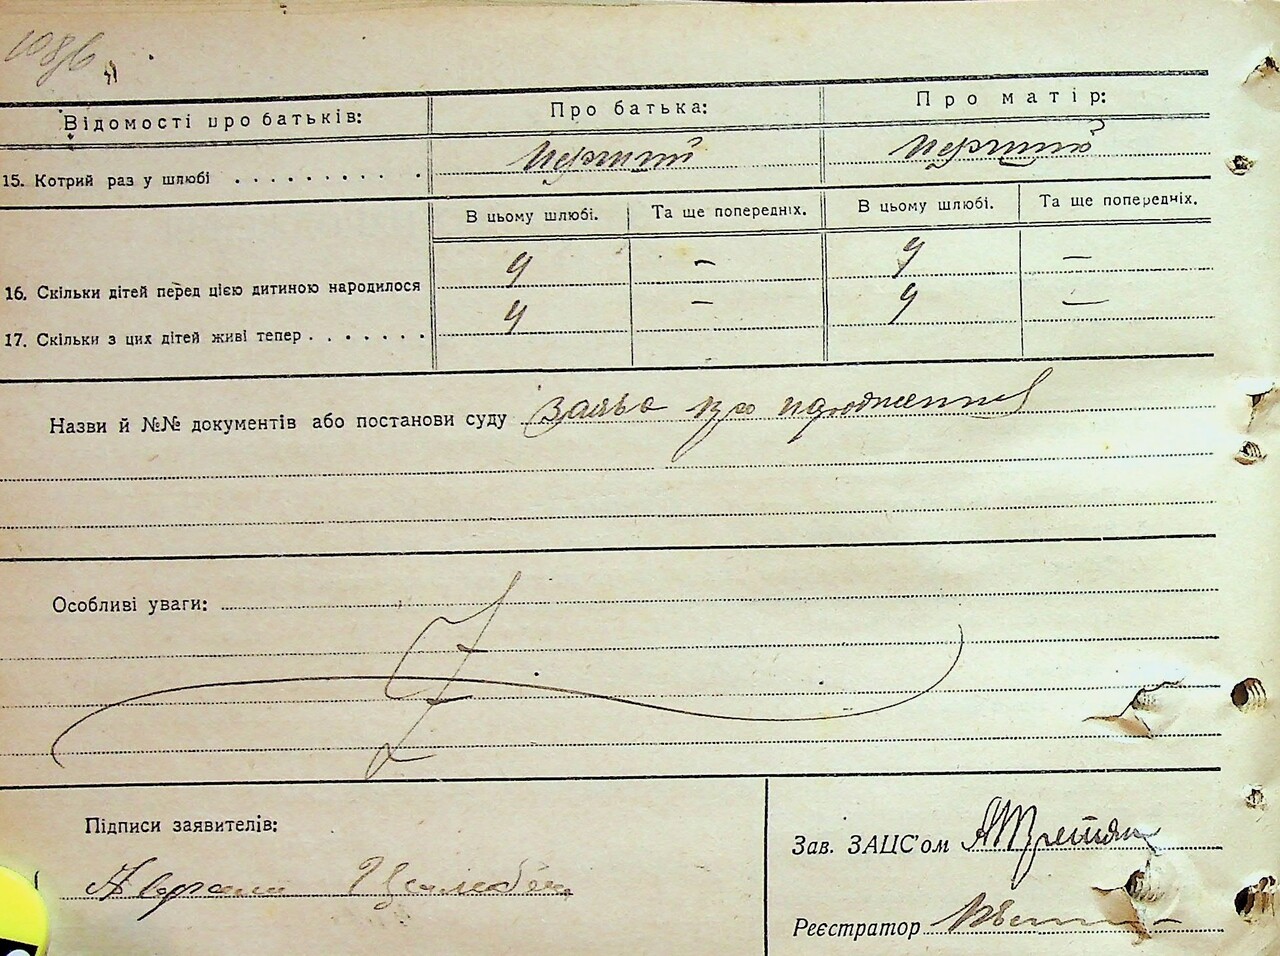 Відомості про батьків: Про батька: Про матір:
15. Котрий раз у шлюбі . . . . . . . . . . перший перший
В цьому шлюбі. Та ще попередніх. В цьому шлюбі. Та ще попередніх.
16. Скільки дітей перед цією дитиною народилося 4 – 4 –
17. Скільки з цих дітей живі тепер . . . . . . . 4 – 4 –
Назви й №№ документів або постанови суду заява про
Особливі уваги:
Підписи заявителів:
Зав. ЗАЦС'ом
Реєстратор